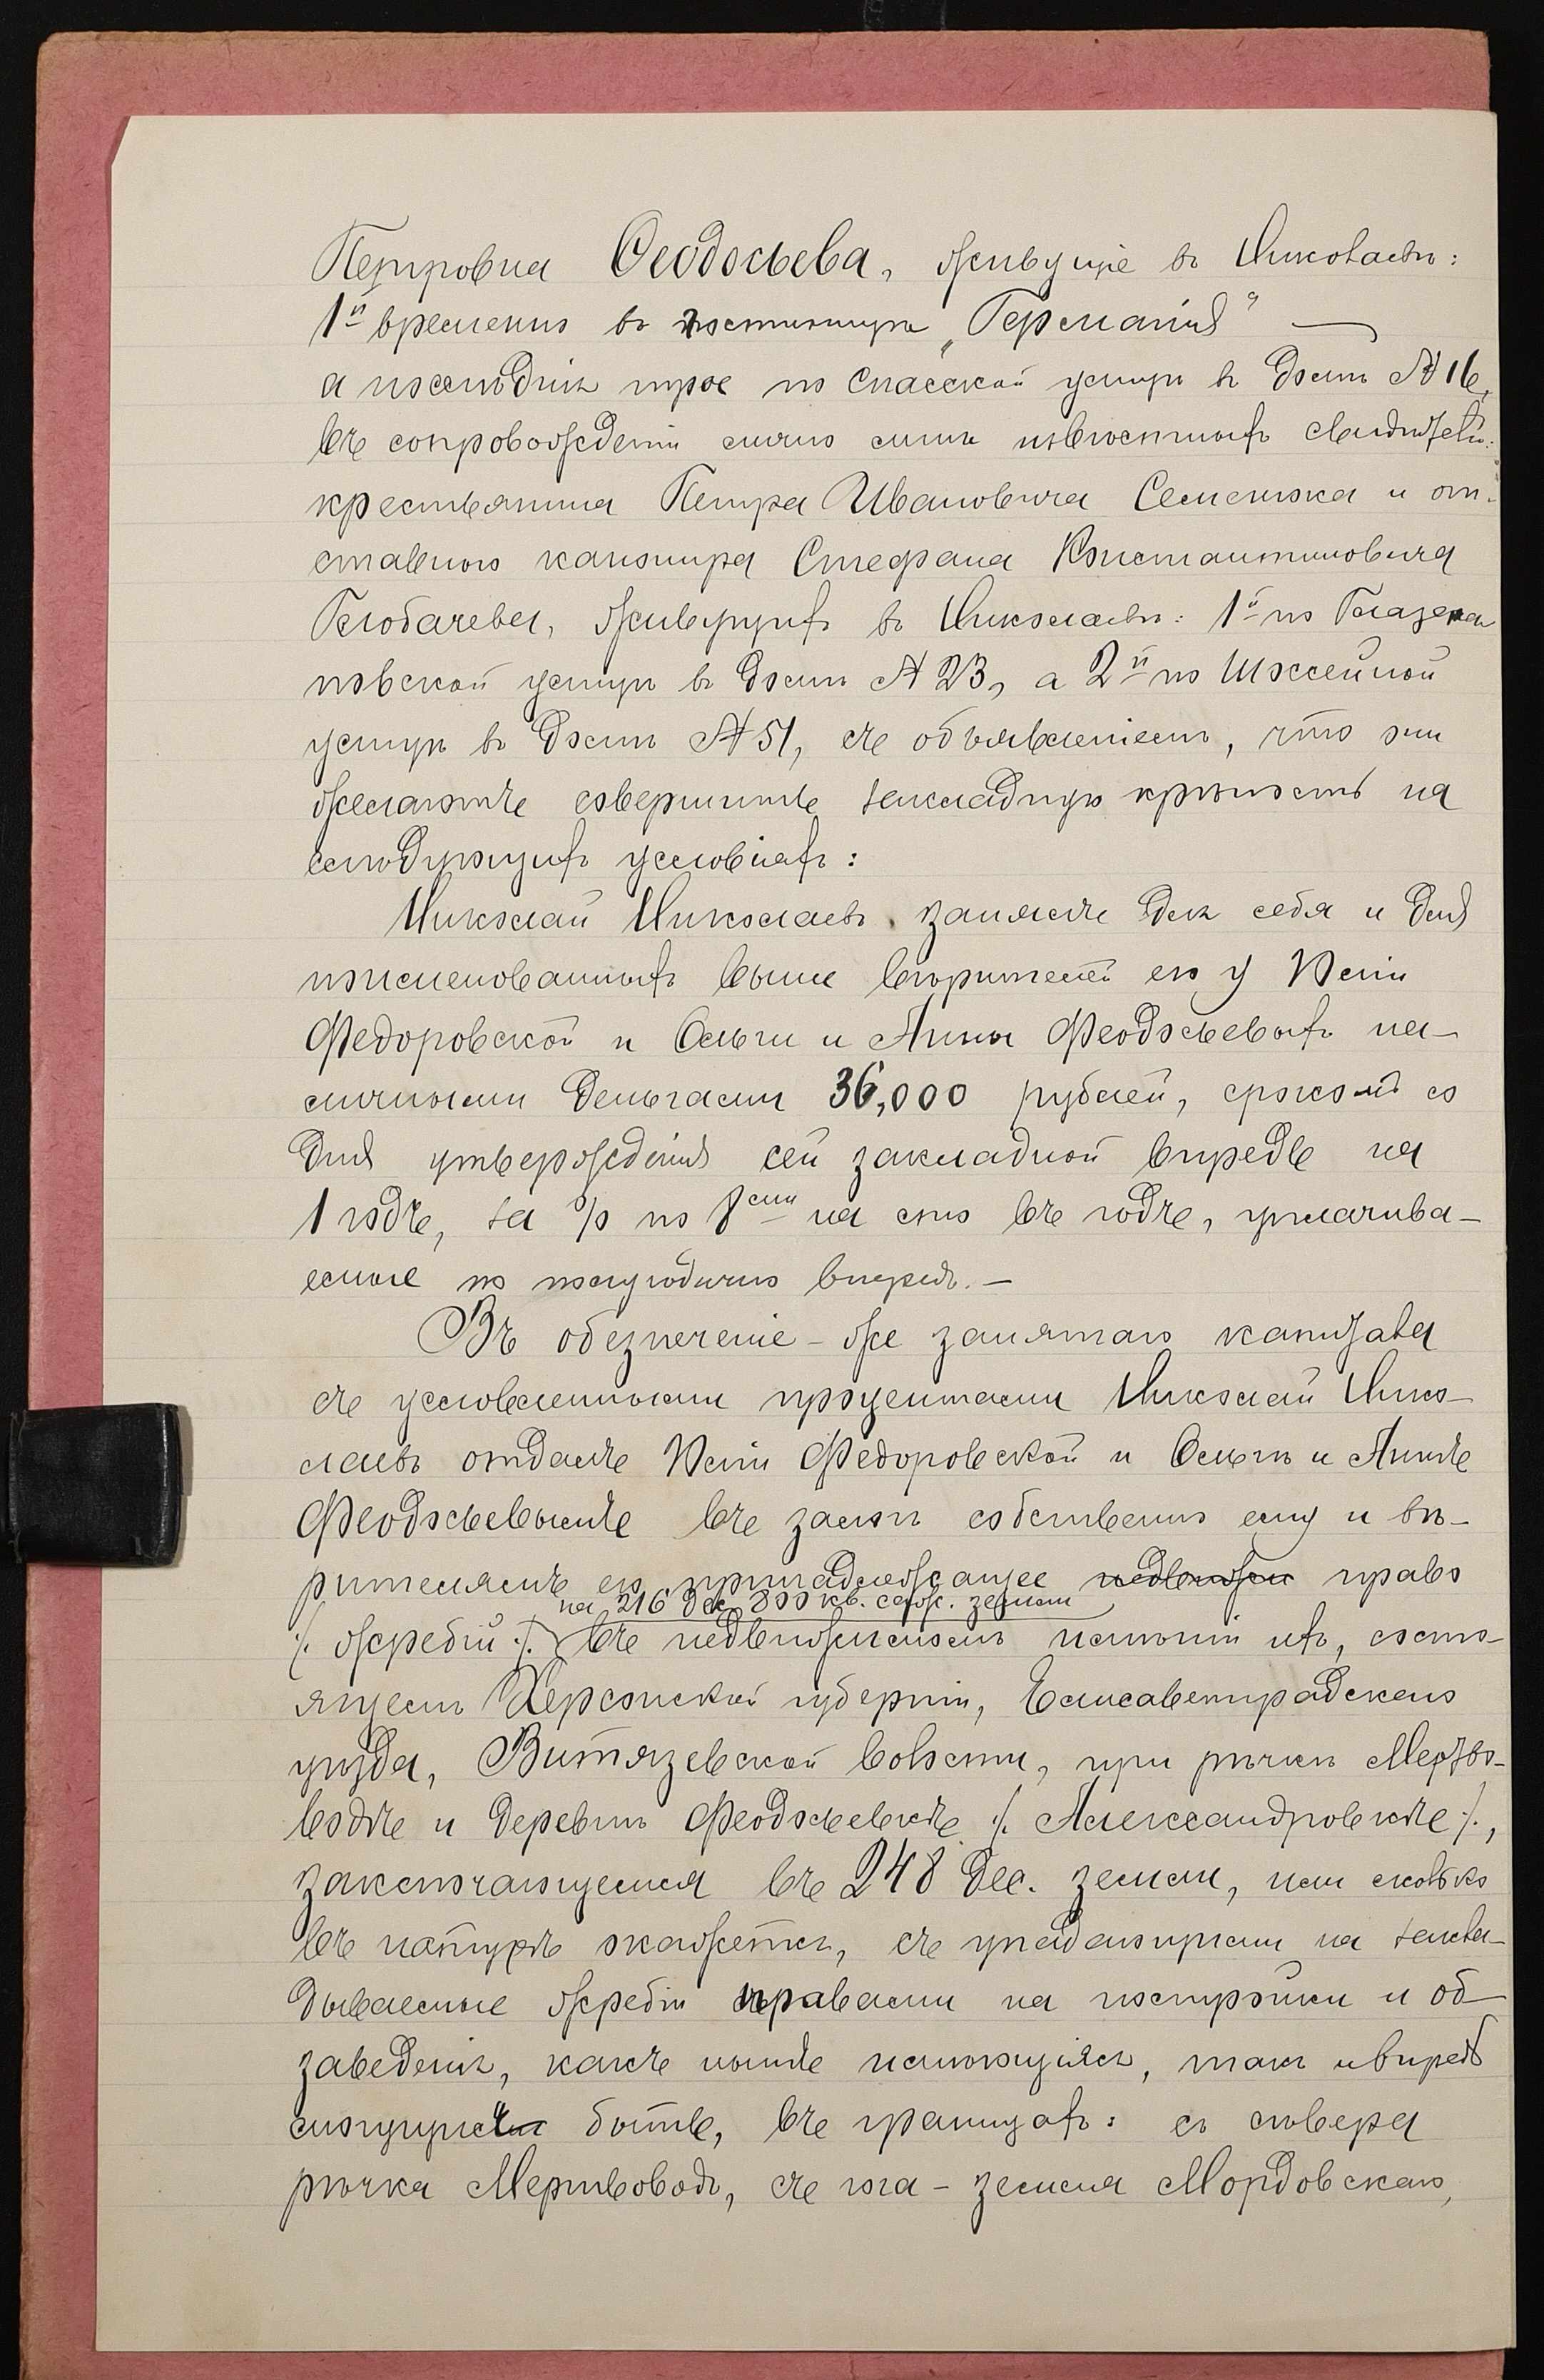 Петровна Ѳеодосьева, живущіе въ Николаевѣ:
1й временно въ гостинницѣ „Германія“ —
а послѣднія трое по Спасской улицѣ въ домѣ № 16,
въ сопровожденіи лично мнѣ извѣстныхъ свидѣтелей:
крестьянина Петра Ивановича Семенюка и от-
ставного канонира Стефана Константиновича
Клобачева, живущихъ въ Николаевѣ: 1й по
новской улицѣ въ домѣ № 23, а 2й по Шоссейной
улицѣ въ домѣ № 51, съ объявленіемъ, что они
желаютъ совершить закладную крѣпость на
слѣдующихъ условіяхъ:
Николай Николаевъ занялъ для себя и для
поименованныхъ выше вѣрителей его у Юліи
Федоровской и Ольги и Анны Феодосьевыхъ на-
личными деньгами 36,000 рублей, срокомъ со
дня утвержденія сей закладной впредь на
1 годъ, за % по 8ми на сто въ годъ, уплачива-
емые по полугодично впередъ. —
Въ обезпеченіе - же занятаго капитала
съ условленными процентами Николай Нико-
лаевъ отдалъ Юліи Федоровской и Ольгѣ и Аннѣ
Феодосьевымъ въ залогъ собственно ему и вѣ-
рителямъ его принадлежащее недвижи право
на 216 дес. 800 кв. саж. земли
/. жребій ./. въ недвижимомъ имѣніи ихъ, состо-
ящемъ Херсонской губерніи, Елисаветградскаго
уѣзда, Витязевской волости, при рѣчкѣ Мертво-
водѣ и деревнѣ Феодосьевкѣ /. Александровкѣ ./.,
заключающемся въ 248 дес. земли, или сколько
въ натурѣ окажется, съ упадающими на закла-
дываемые жребіи правами на постройки и об-
заведенія, какъ нынѣ имѣющіяся, такъ и впредь
могущія быть, въ границахъ: съ сѣвера
рѣчка Мертвоводъ, съ юга - земля Мордовскаго,